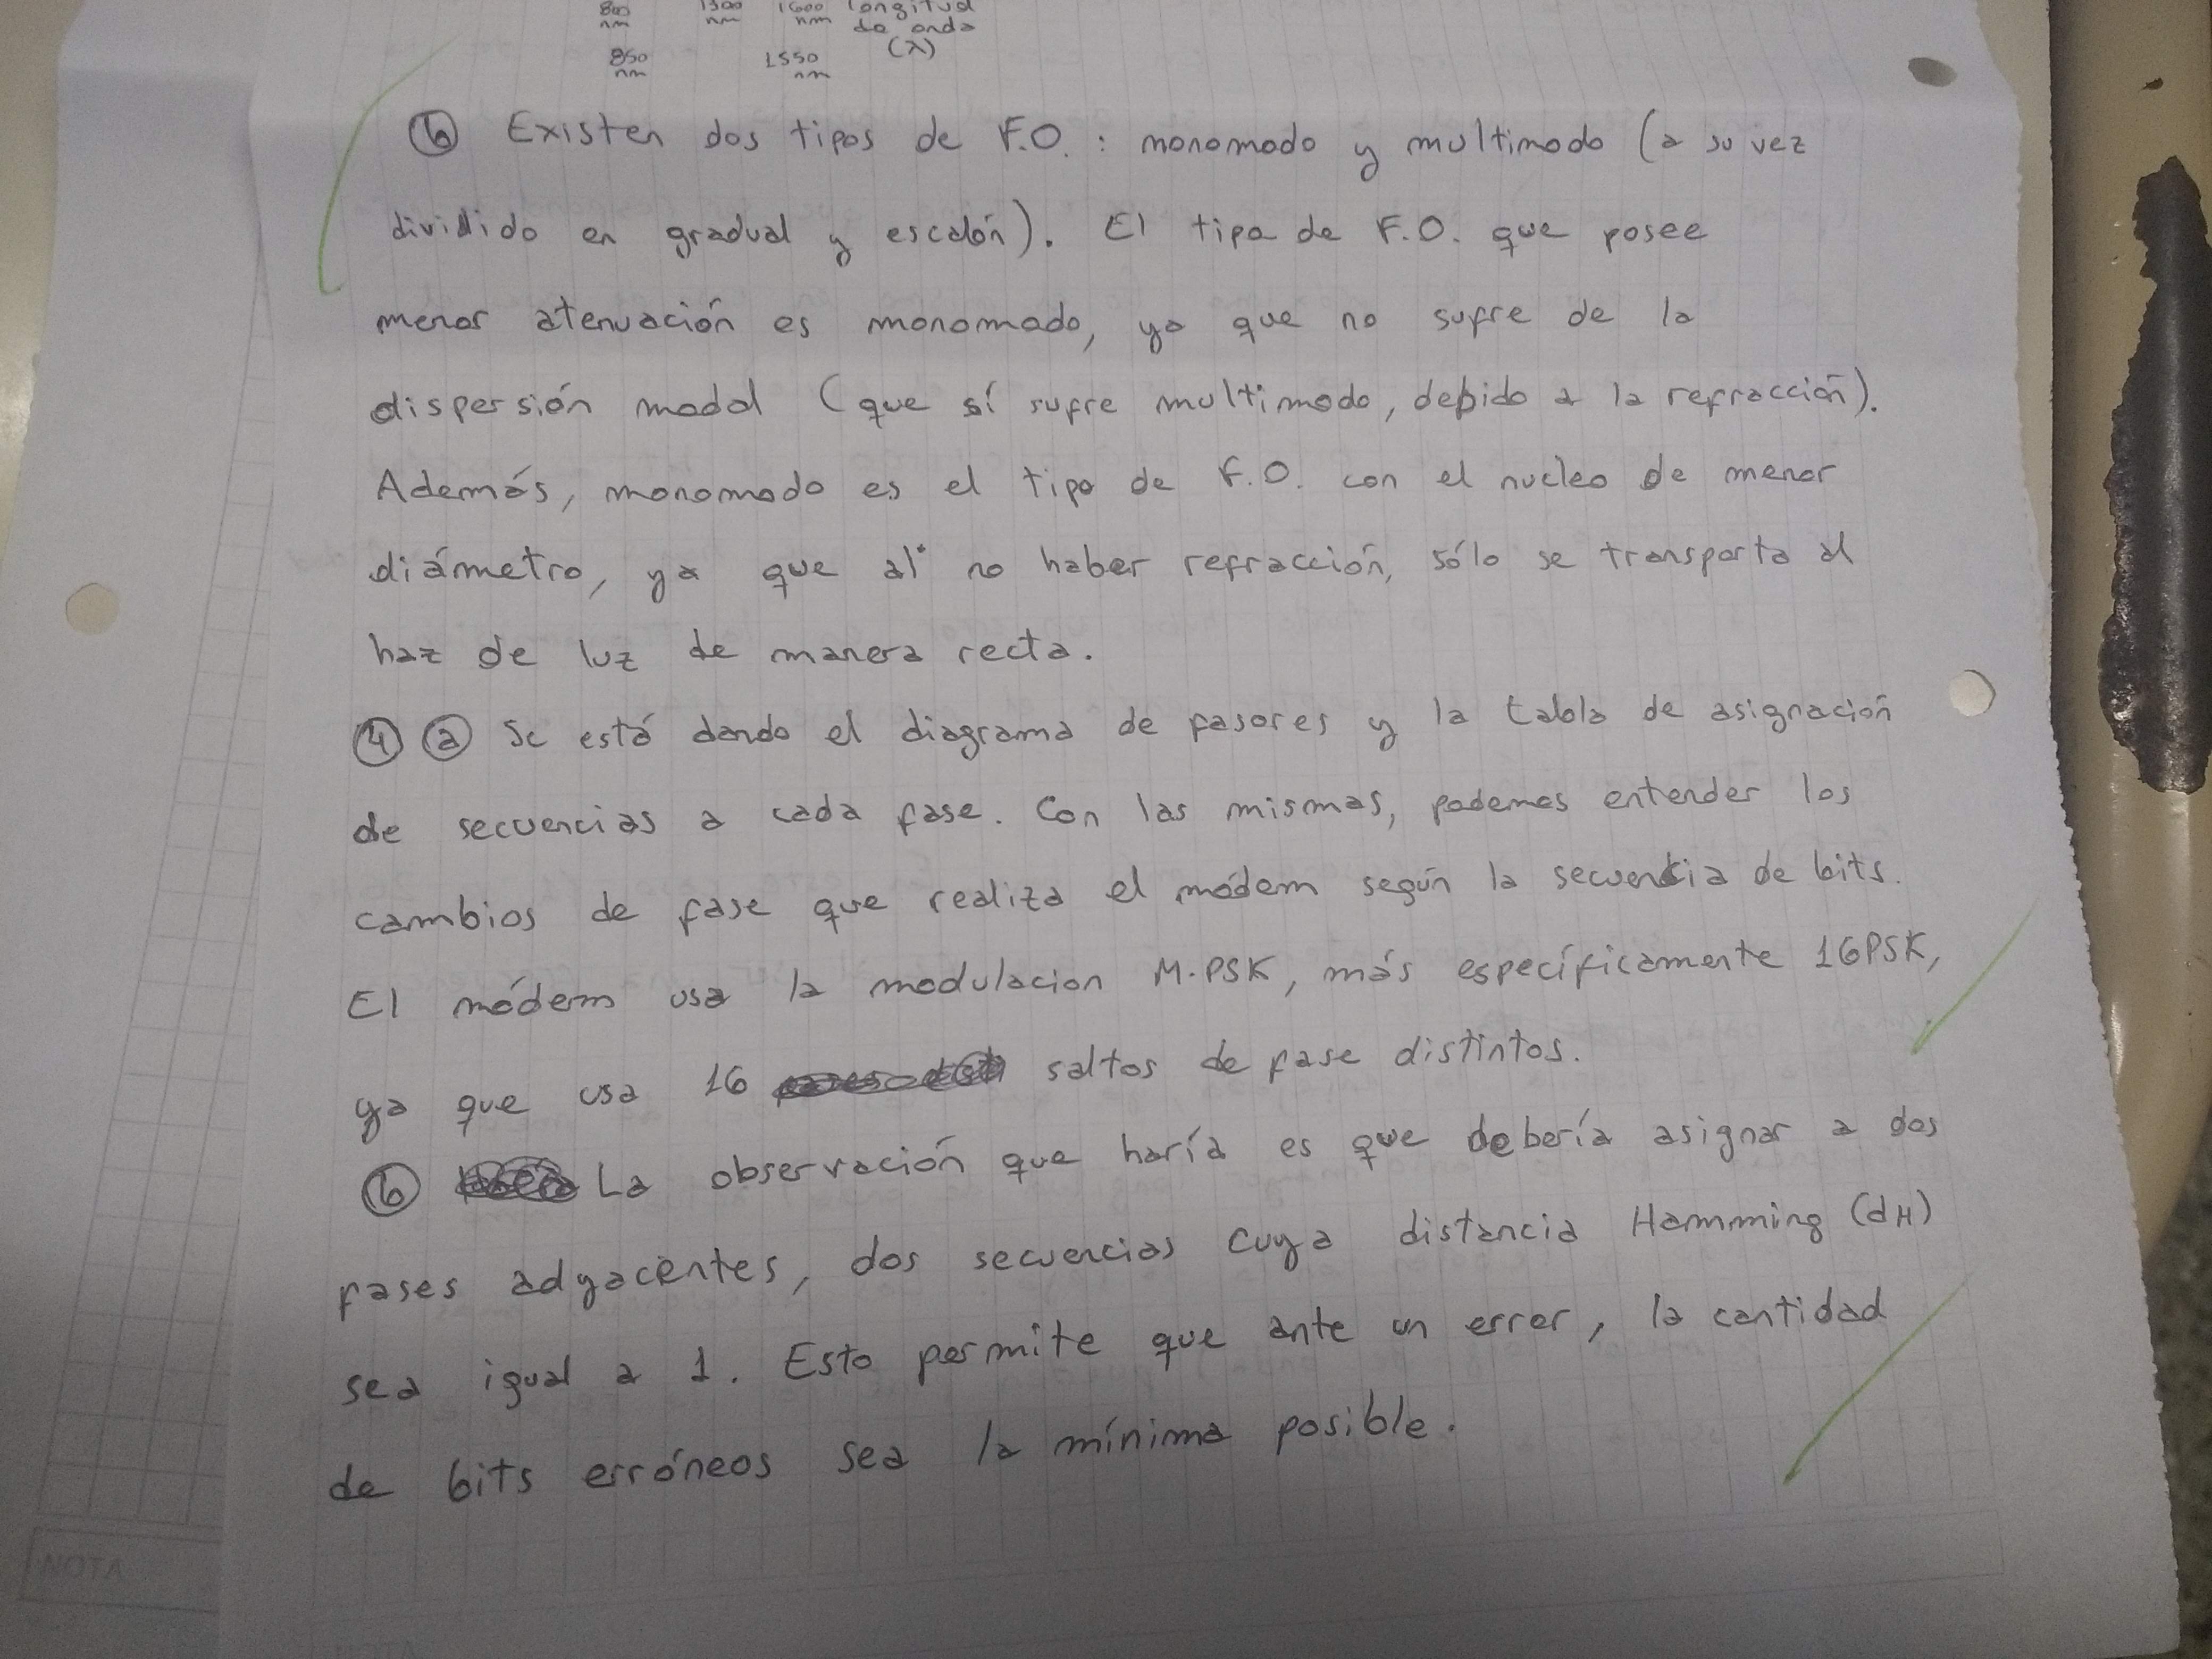 800 nm 1300 nm 1600 nm longitud de onda (λ)
850 nm 1550 nm
b Existen dos tipos de F.O. : monomodo y multimodo (a su vez
dividido en gradual y escalón). El tipo de F.O. que posee
menor atenuación es monomodo, ya que no sufre de la
dispersión modal (que sí sufre multimodo, debido a la refracción).
Además, monomodo es el tipo de F.O. con el nucleo de menor
diámetro, ya que al no haber refracción, sólo se transporta al
haz de luz de manera recta.
4 a Se está dando el diagrama de fasores y la tabla de asignación
de secuencias a cada fase. Con las mismas, podemos entender los
cambios de fase que realiza el módem según la secuencia de bits.
El módem usa la modulacion M-PSK, más específicamente 16PSK,
ya que usa 16 saltos de fase distintos.
b La observación que haría es que debería asignar a dos
fases adyacentes, dos secuencias cuya distancia Hamming (dH)
sea igual a 1. Esto permite que ante un error, la cantidad
de bits erróneos sea la mínima posible.
NOTA